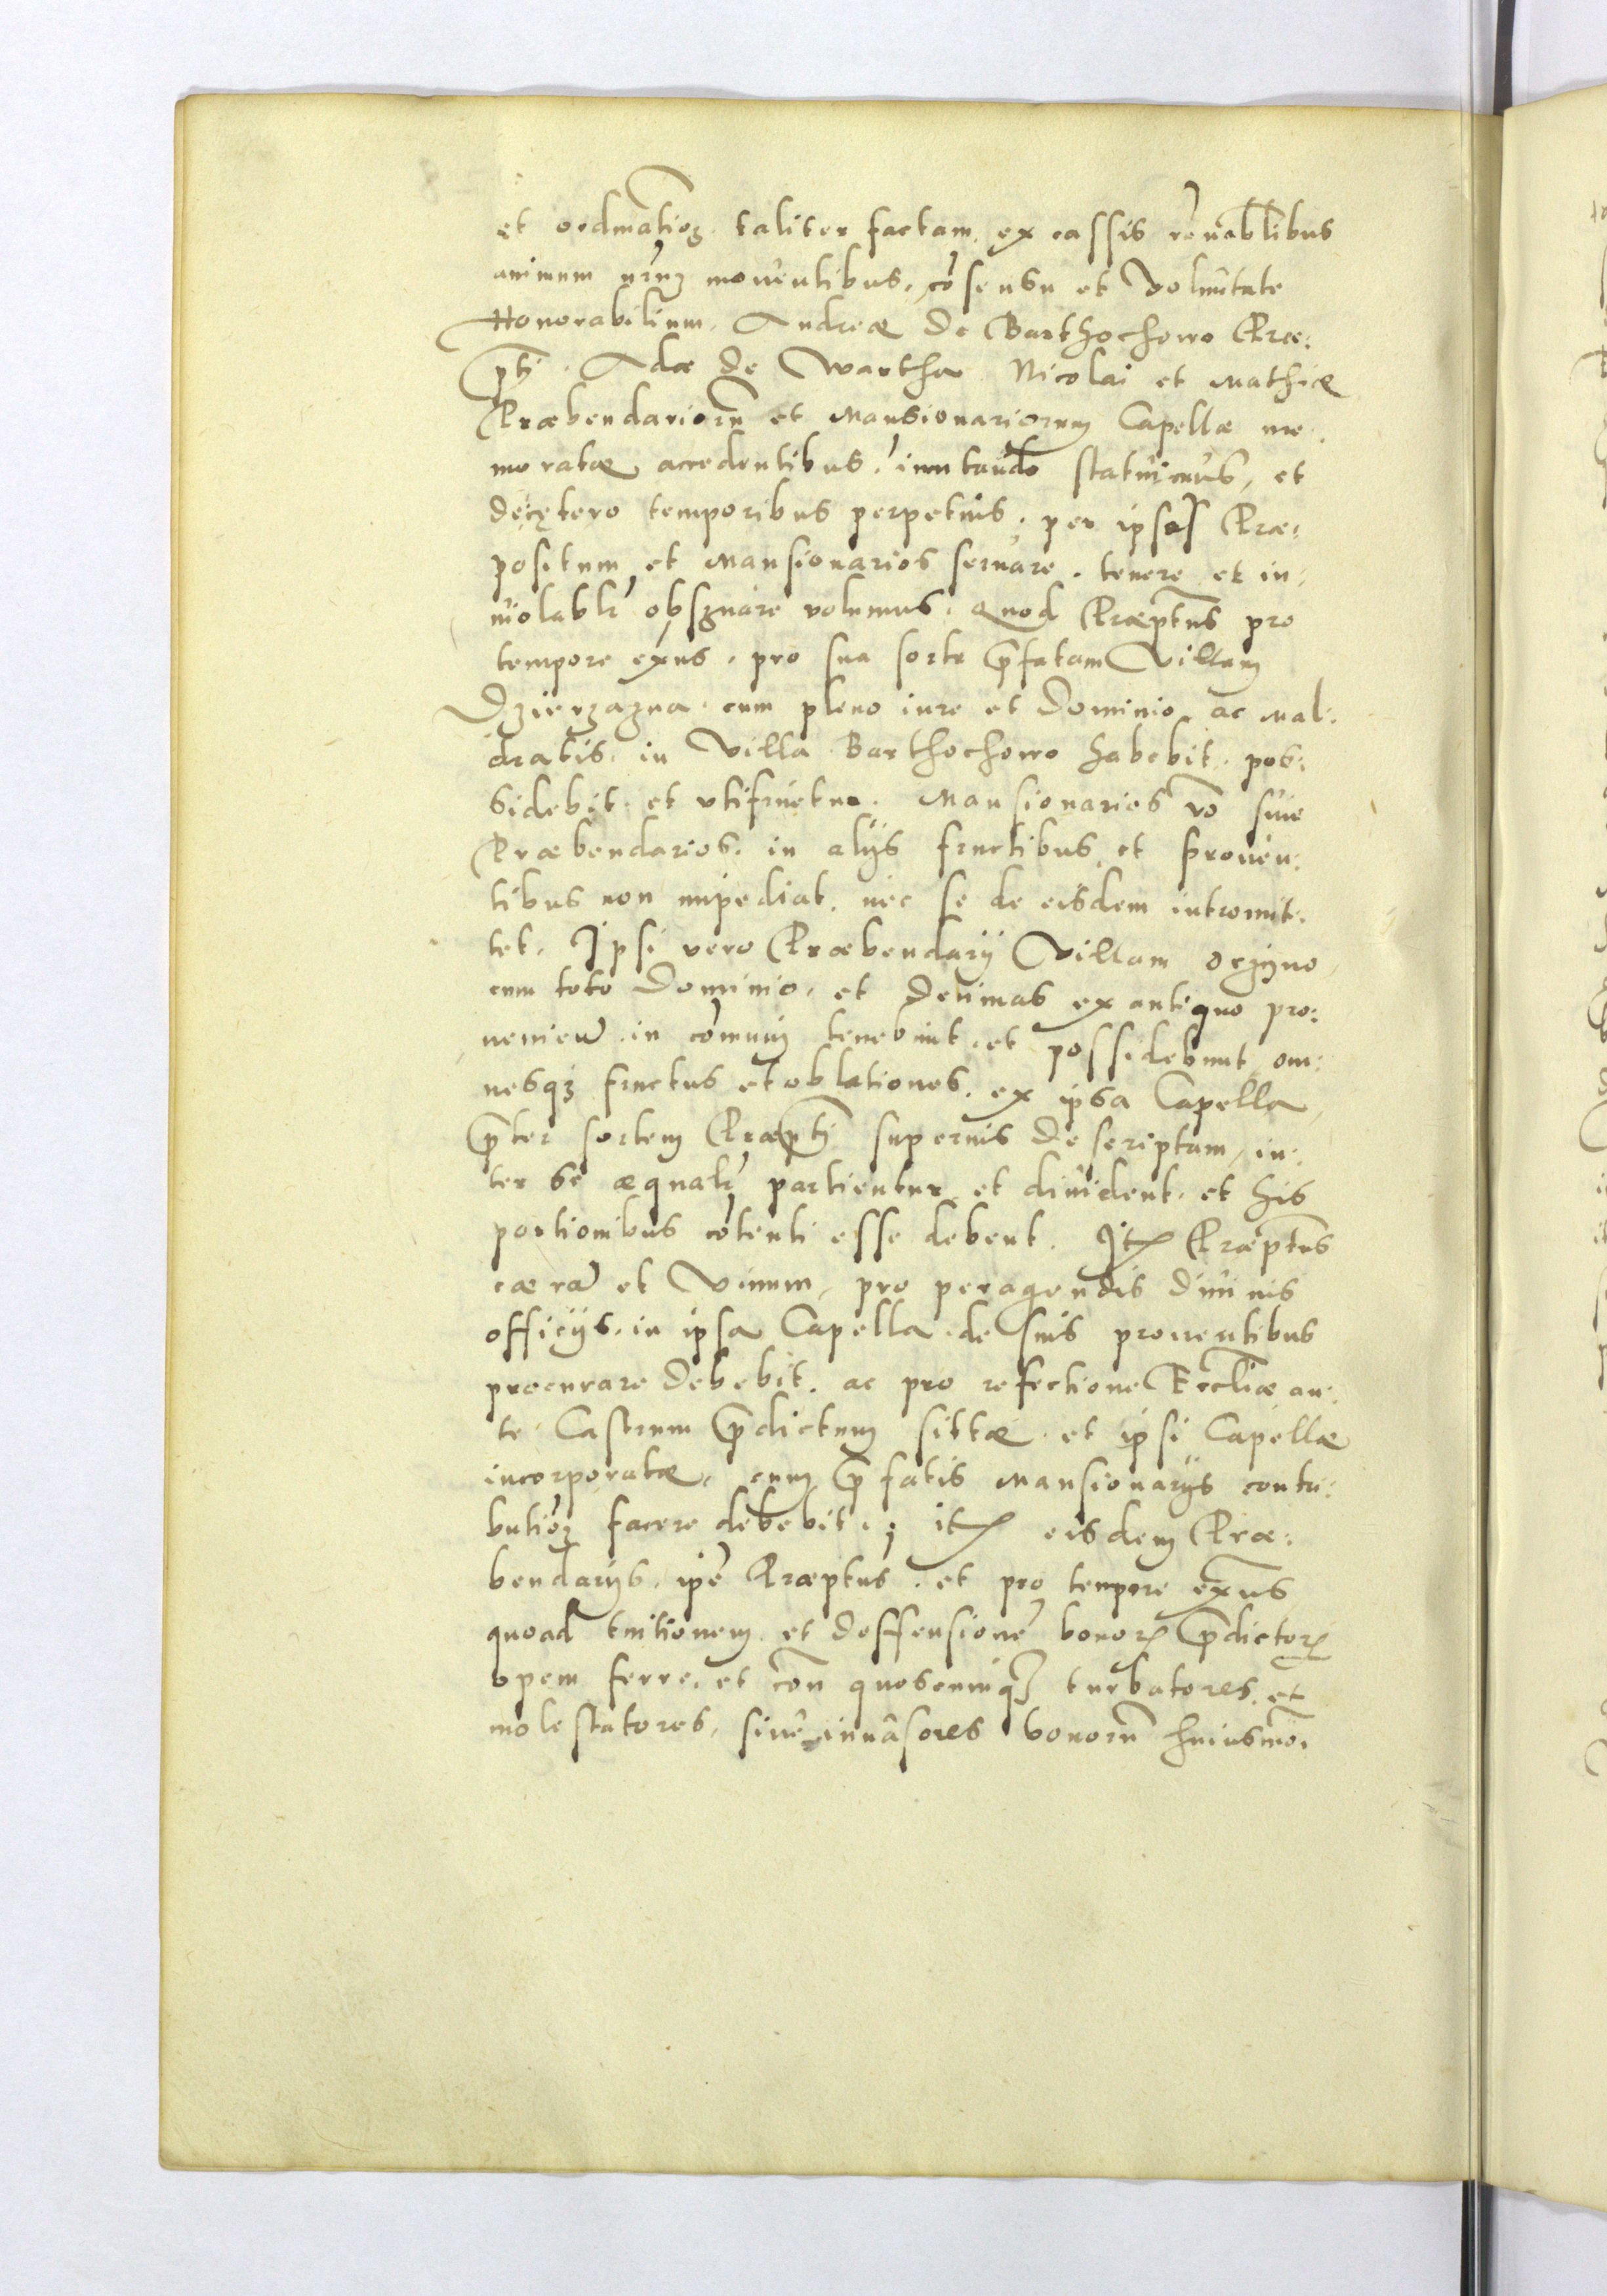 et ordinatioꝫ taliter factam, ex cassis rōnablibus
animum nrūꝫ moventibus, cōsensu et Volūtate
Honorabilium, Andreæ de Barthochowo Præ:
pti. Adæ de Wartha Nicolai et Mathiæ
Præbendariorū et Mansionariorum Capellæ me:
moratæ accedentibus, imutando statuimus, et
decętero temporibus perpetuis, per ipsos Præ:
positum et Mansionarios servare, tenere et in:
violablr obsꝫuare volumus. Quod Præptus pro
tempore exn̄s, pro sua sorte p̄fatam Villam
Dzierzazna cum pleno iure et Dominio, ac Mal:
dratis, in Villa Barthochowo habebit, pos:
sidebit et utifruetur. Mansionarios vō sive
Præbendarios, in alijs fructibus et proven:
tibus non impediat, nec se de eisdem intromit:
tet. Ipsi vero Præbendarij Villam
cum toto Dominio, et Decimas ex antiquo pro:
venien̄ in cōmuni tenebunt, et possidebunt om:
nesqꝫ fructus et oblationes, ex ipsa Capella,
p̄ter sortem Præpti superius descriptam, in:
ter se æqualr partientur et divident, et his
portionibus cōtenti esse debent. Itꝫ Præptus
cærā et Vinum, pro peragendis Divinis
officijs, in ipsa Capella de suis proventibus
procurare debebit, ac pro refectione Ecclīæ an:
te Castrum p̄dictum sittæ et ipsi Capellæ
incorporatæ, cum p̄fatis Mansionarijs contri:
butioꝫ facere debebit. itꝫ eisdem Præ:
bendarijs, ipē Præptus et pro tempore exn̄s
quoad tuitionem et deffensionē bonorꝫ p̄dictorꝫ
opem ferre, et cōn quoscunqꝫ turbatores, et
molestatores, sive invasores bonorū huiusmō.